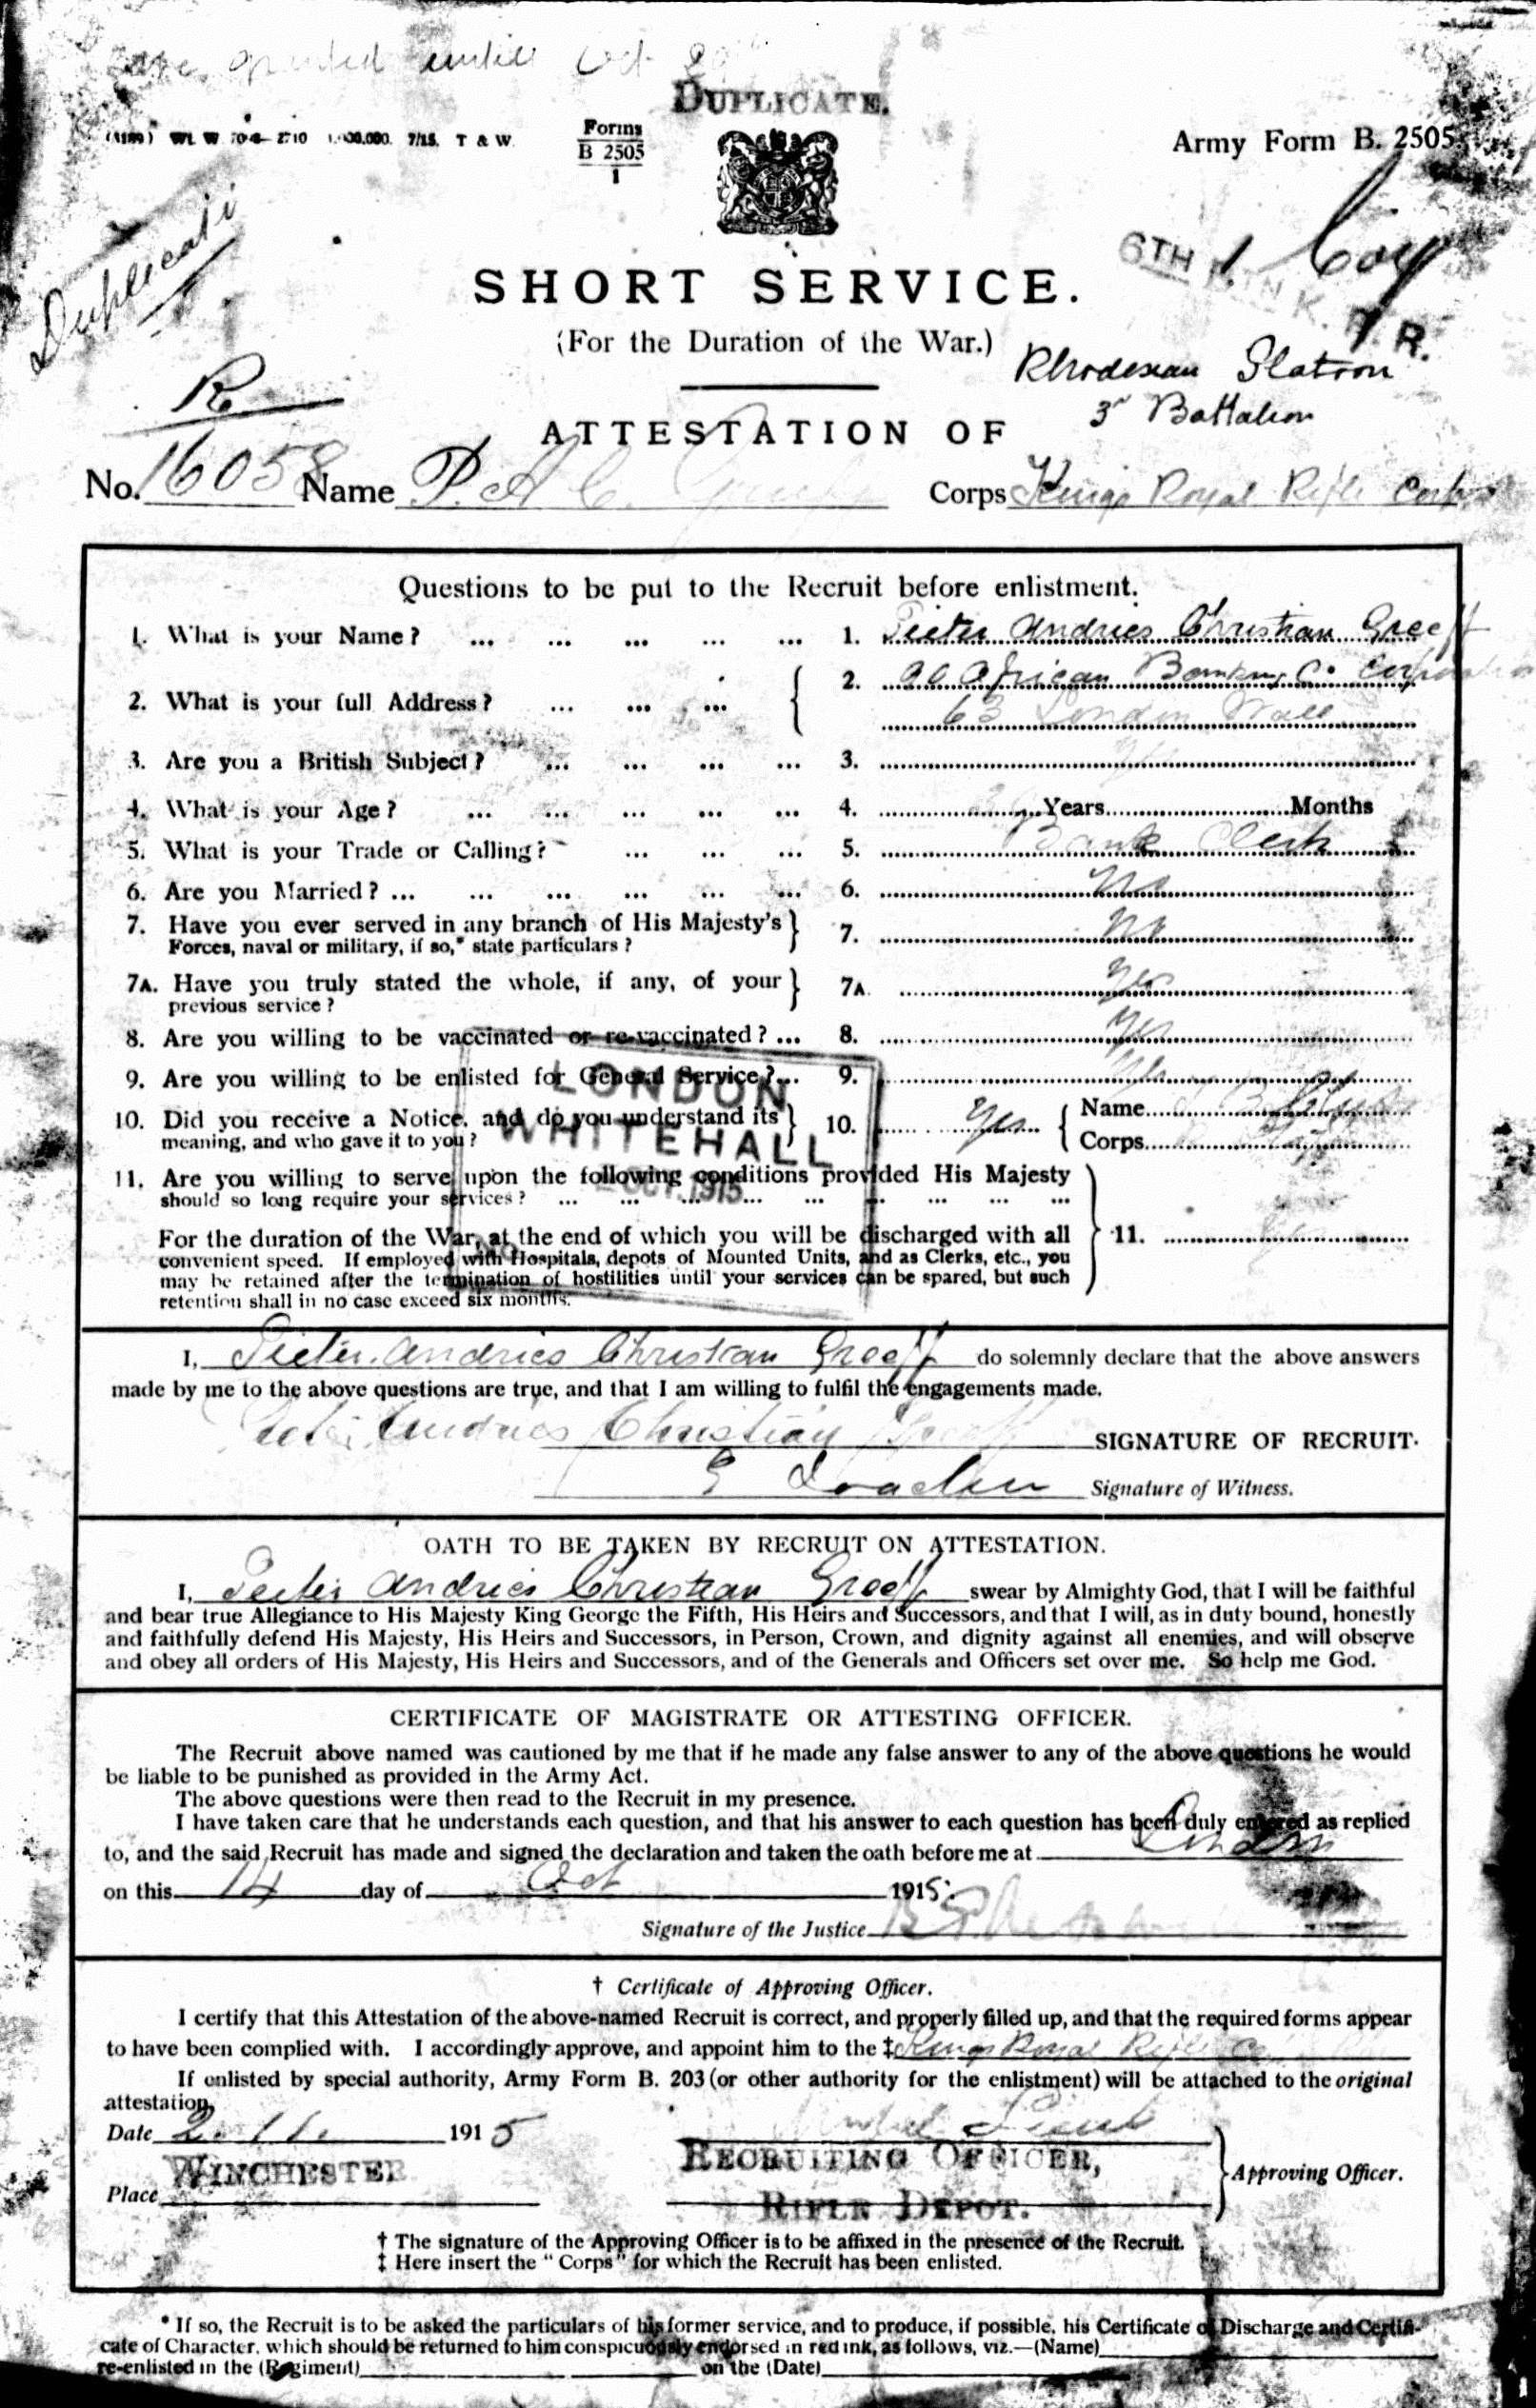 granted until Oct
DUPLICATE.
Forms
B 2505
1
Army Form B. 2505.
7/15. T & W.
Duplicate
6TH BN K. R. R.
1 Coy
SHORT SERVICE.
(For the Duration of the War.)
Rhodesian Platoon
3r Battalion
R
ATTESTATION OF
No. 16058 Name P. A. C. Greeff Corps Kings Royal Rifle Corps
Questions to be put to the Recruit before enlistment.
1. What is your Name? ... ... ... ... ... 1. Pieter Andries Christian Greeff
2. What is your full Address? ... ... ... 2. African Banking Co. Corporation
63 London Wall
3. Are you a British Subject? ... ... ... ... 3. Yes
4. What is your Age? ... ... ... ... ... 4. Years Months
5. What is your Trade or Calling? ... ... ... 5. Bank Clerk
6. Are you Married? ... ... ... ... ... ... 6. No
7. Have you ever served in any branch of His Majesty's 7. No
Forces, naval or military, if so,* state particulars?
7A. Have you truly stated the whole, if any, of your 7A. Yes
previous service?
8. Are you willing to be vaccinated or re-vaccinated? ... 8. Yes
9. Are you willing to be enlisted for General Service? ... 9. Yes
10. Did you receive a Notice, and do you understand its 10. Yes Name
meaning, and who gave it to you? Corps
LONDON
WHITEHALL
OCT. 1915
11. Are you willing to serve upon the following conditions provided His Majesty
should so long require your services? ... ... ... ... ... ... ... ... ...
For the duration of the War, at the end of which you will be discharged with all 11.
convenient speed. If employed with Hospitals, depots of Mounted Units, and as Clerks, etc., you
may be retained after the termination of hostilities until your services can be spared, but such
retention shall in no case exceed six months.
I, Pieter Andries Christian Greeff do solemnly declare that the above answers
made by me to the above questions are true, and that I am willing to fulfil the engagements made.
Pieter Andries Christian Greeff SIGNATURE OF RECRUIT.
Signature of Witness.
OATH TO BE TAKEN BY RECRUIT ON ATTESTATION.
I, Pieter Andries Christian Greeff swear by Almighty God, that I will be faithful
and bear true Allegiance to His Majesty King George the Fifth, His Heirs and Successors, and that I will, as in duty bound, honestly
and faithfully defend His Majesty, His Heirs and Successors, in Person, Crown, and dignity against all enemies, and will observe
and obey all orders of His Majesty, His Heirs and Successors, and of the Generals and Officers set over me. So help me God.
CERTIFICATE OF MAGISTRATE OR ATTESTING OFFICER.
The Recruit above named was cautioned by me that if he made any false answer to any of the above questions he would
be liable to be punished as provided in the Army Act.
The above questions were then read to the Recruit in my presence.
I have taken care that he understands each question, and that his answer to each question has been duly entered as replied
to, and the said Recruit has made and signed the declaration and taken the oath before me at London
on this 14 day of Oct 1915.
Signature of the Justice
† Certificate of Approving Officer.
I certify that this Attestation of the above-named Recruit is correct, and properly filled up, and that the required forms appear
to have been complied with. I accordingly approve, and appoint him to the ‡ Kings Royal Rifle Co
If enlisted by special authority, Army Form B. 203 (or other authority for the enlistment) will be attached to the original
attestation.
Lieut
Date 2. 11. 1915
RECRUITING OFFICER, Approving Officer.
Place WINCHESTER RIFLE DEPOT.
† The signature of the Approving Officer is to be affixed in the presence of the Recruit.
‡ Here insert the "Corps" for which the Recruit has been enlisted.
* If so, the Recruit is to be asked the particulars of his former service, and to produce, if possible, his Certificate of Discharge and Certifi-
cate of Character, which should be returned to him conspicuously endorsed in red ink, as follows, viz.—(Name)
re-enlisted in the (Regiment) on the (Date)